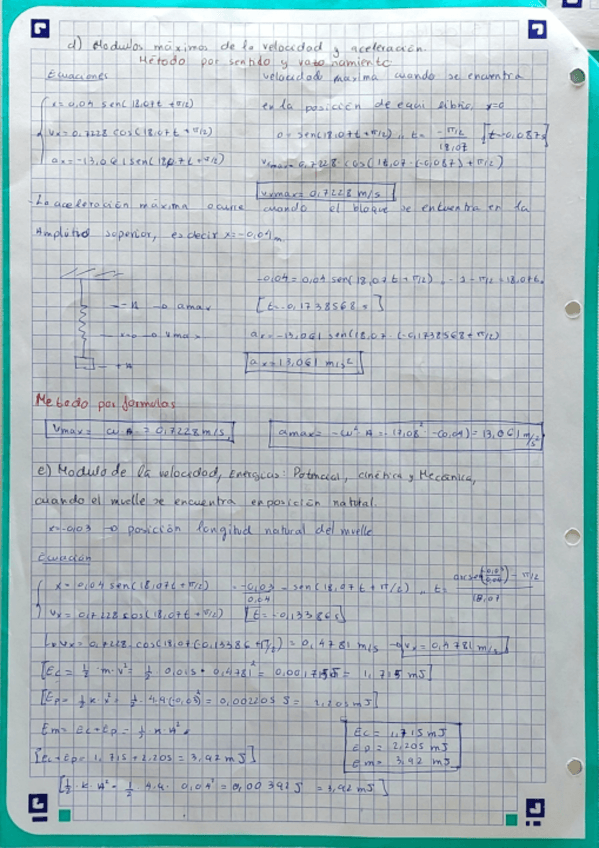 d) Modulos máximos de la velocidad y aceleración.
Método por sentido y razonamiento
Ecuaciones
x = 0,04 sen(18,07t + π/2)
vx = 0,7228 cos(18,07t + π/2)
ax = -13,061 sen(18,07t + π/2)
velocidad maxima cuando se encuentra
en la posición de equilibrio, x=0
0 = sen(18,07t + π/2) ,, t = -π/2 / 18,07 [t=-0,087s]
vxmax = 0,7228 · cos(18,07 · (-0,087) + π/2)
vxmax = 0,7228 m/s
- La aceleración máxima ocurre cuando el bloque se encuentra en la
Amplitud superior, es decir x=-0,04m
-0,04 = 0,04 sen(18,07t + π/2)
[t=-0,1738568 s]
-A → amax
x=0 → Vmax
+A
ax = -13,061 sen(18,07 · (-0,1738568 + π/2)
ax = 13,061 m/s²
Metodo por formulas
Vmax = ω·A = 0,7228 m/s
amax = -ω²·A = -17,08² · -(0,04) = 13,061 m/s²
e) Modulo de la velocidad, Energias: Potencial, cinética y Mecánica,
cuando el muelle se encuentra en posición natural.
x=-0,03 → posición longitud natural del muelle
Ecuación
x = 0,04 sen(18,07t + π/2)
-0,03/0,04 = sen(18,07t + π/2) ,, t = arcsen(-0,03/0,04) - π/2 / 18,07
vx = 0,7228 cos(18,07t + π/2) [t=-0,13386s]
vx = 0,7228 · cos(18,07(-0,13386 + π/2) = 0,4781 m/s → vx = 0,4781 m/s
[Ec = ½ · m · v² = ½ · 0,015 · 0,4781² = 0,001715 J = 1,715 mJ]
[Ep = ½ k x² = ½ · 4,9 (0,03)² = 0,002205 J = 2,205 mJ]
Em = Ec + Ep = ½ · k · A²
[Ec + Ep = 1,715 + 2,205 = 3,92 mJ]
[½ · k · A² = ½ 4,9 · 0,04² = 0,00392 J = 3,92 mJ]
Ec = 1,715 mJ
Ep = 2,205 mJ
Em = 3,92 mJ